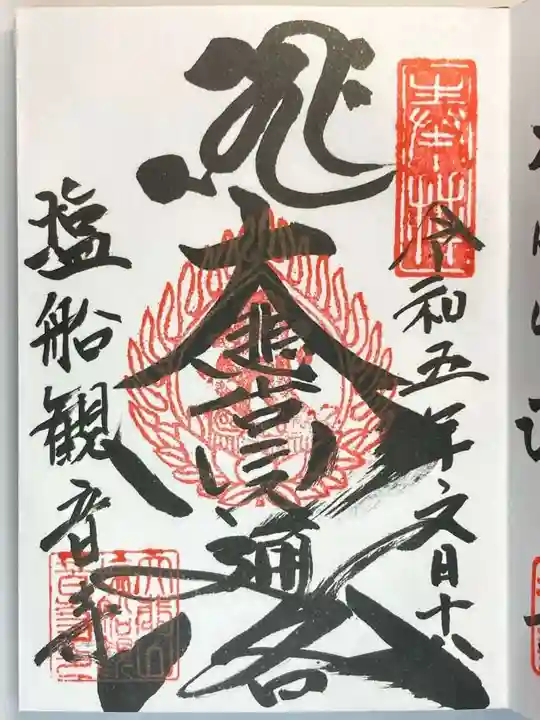 奉拝
令和五年文月十八
大悲圓通
塩船観音寺